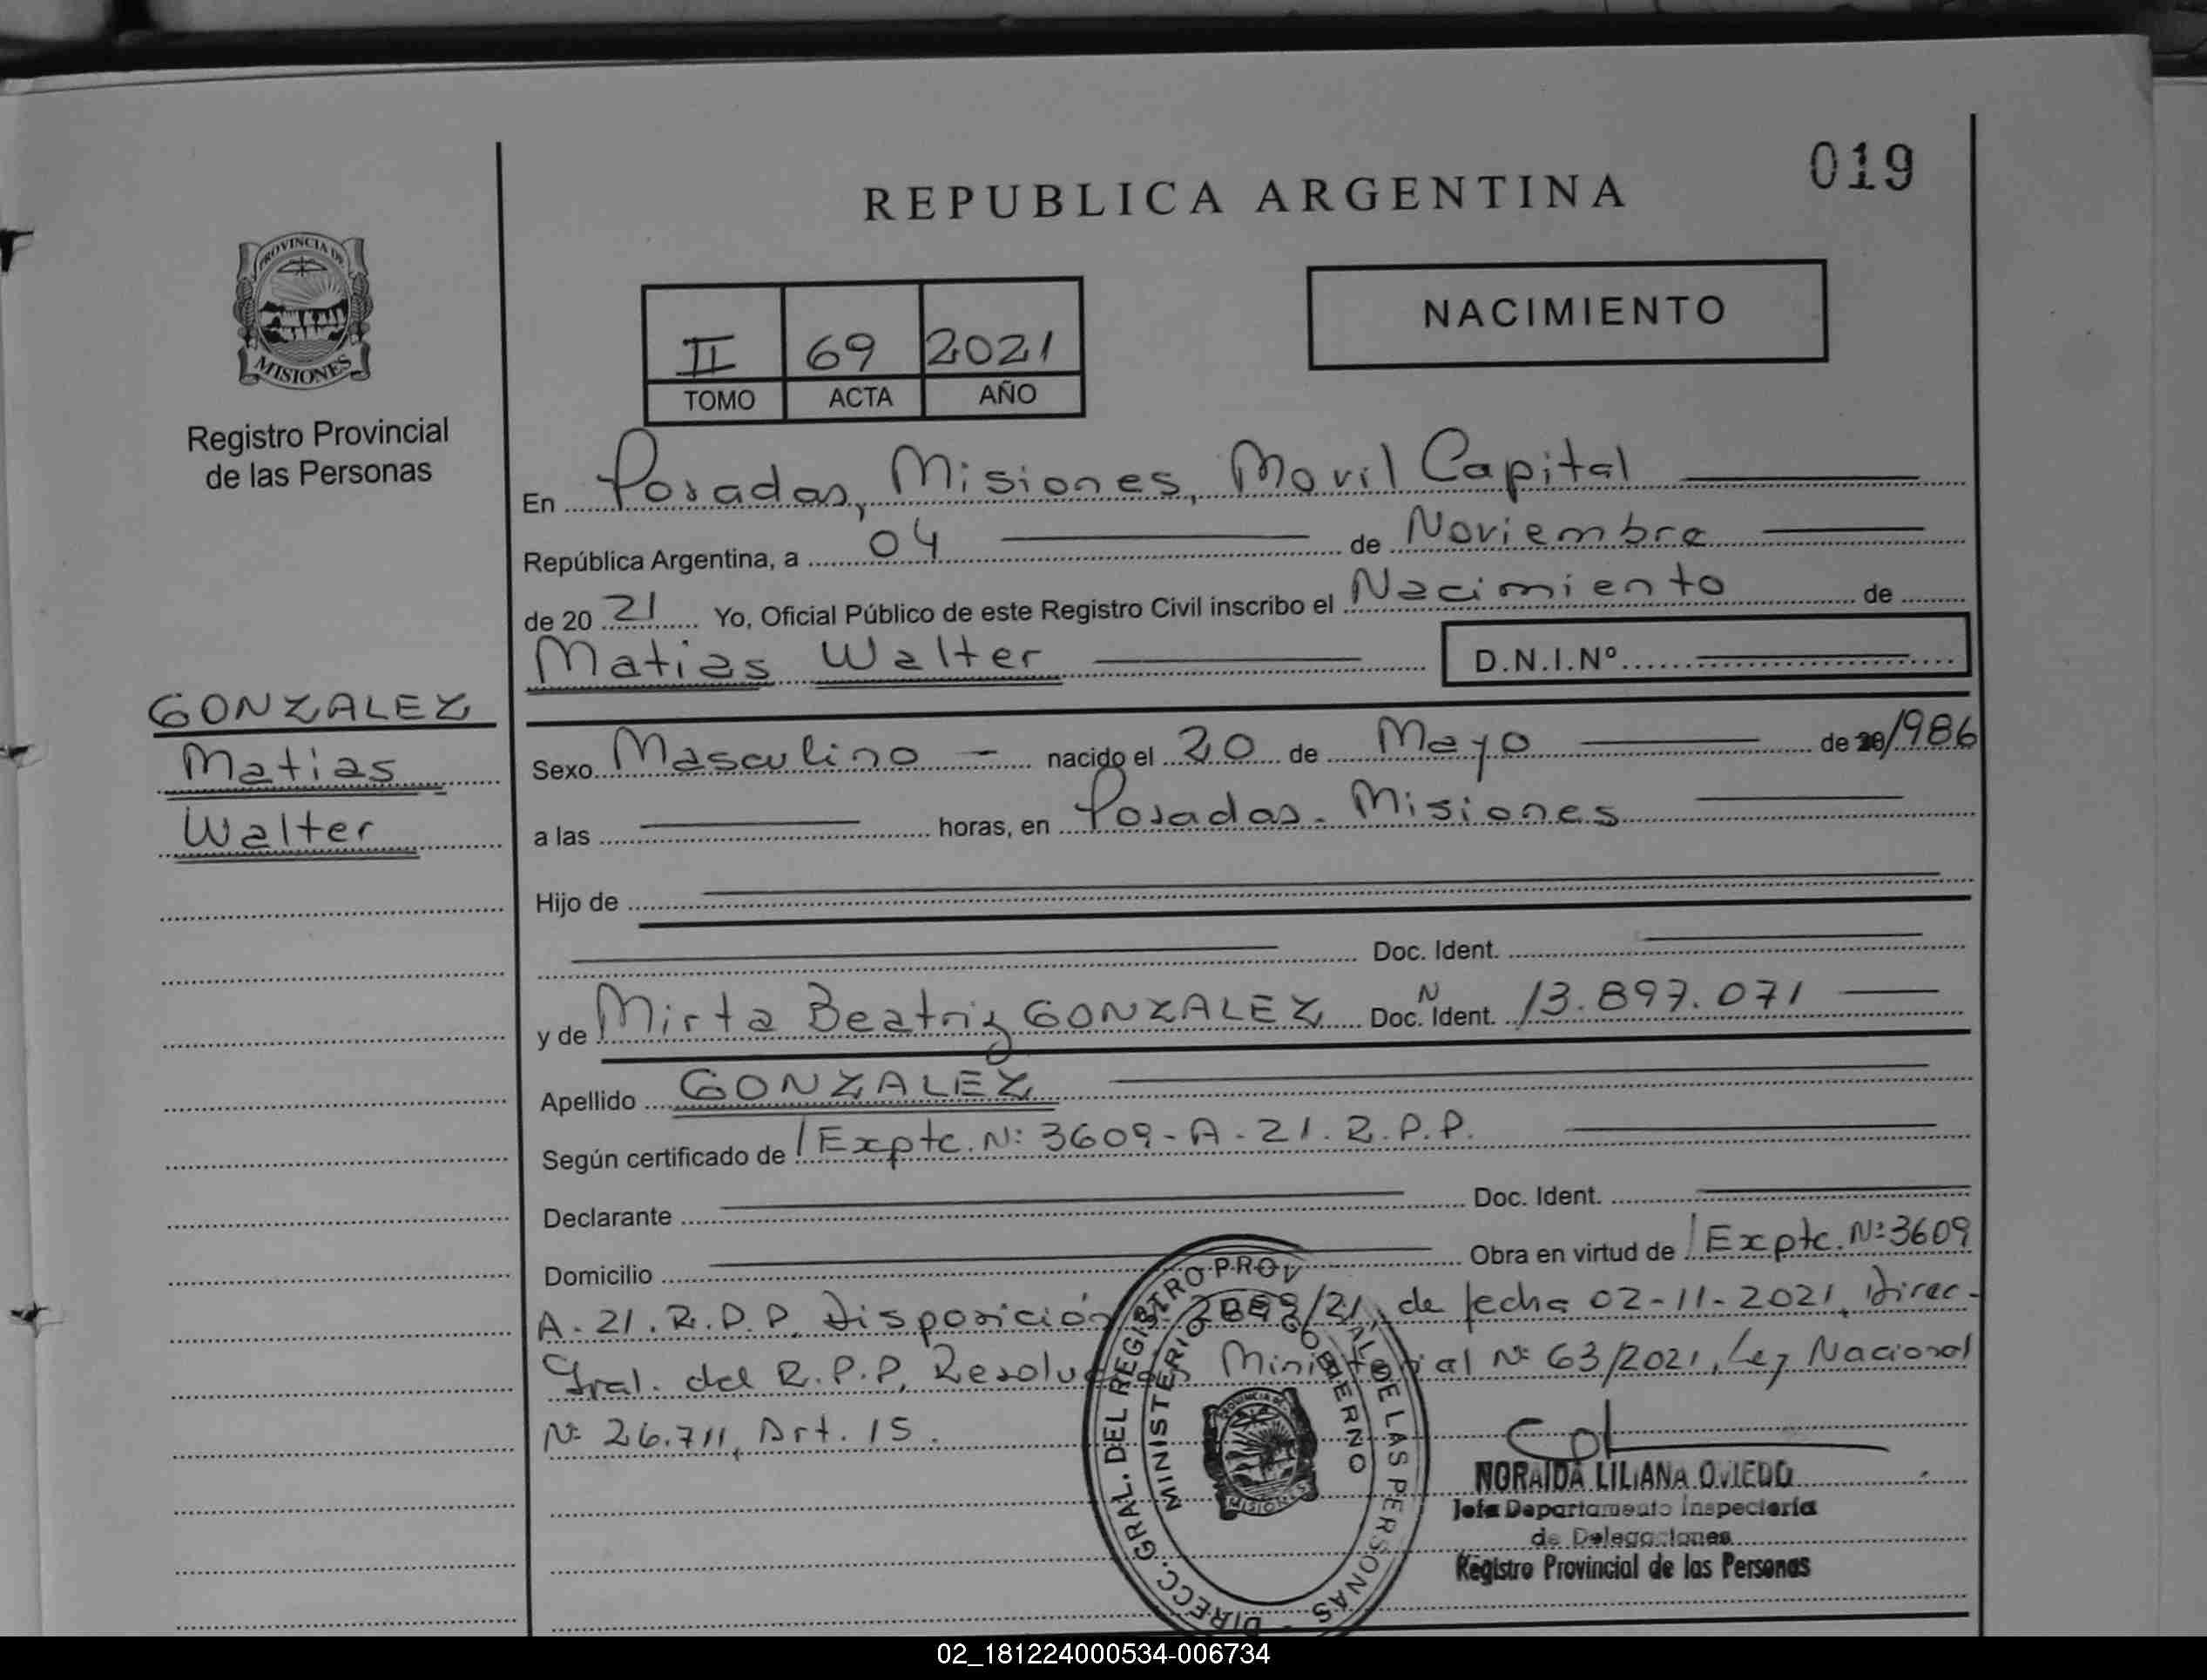 019
REPUBLICA ARGENTINA
PROVINCIA DE
MISIONES
NACIMIENTO
II 69 2021
TOMO ACTA AÑO
Registro Provincial
de las Personas
En Posadas, Misiones, Movil Capital
República Argentina, a 04 de Noviembre
de 20 21 Yo, Oficial Público de este Registro Civil inscribo el Nacimiento de
Matias Walter D.N.I.Nº
GONZALEZ
Matias
Walter
Sexo Masculino nacido el 20 de Mayo de 20/986
a las horas, en Posadas - Misiones
Hijo de
Doc. Ident.
y de Mirta Beatriz GONZALEZ Doc. N Ident. 13.897.071
Apellido GONZALEZ
Según certificado de / Expte. Nº 3609-A-21.R.P.P.
Declarante Doc. Ident.
Domicilio Obra en virtud de / Expte. Nº 3609
A-21.R.P.P. Disposición /21, de fecha 02-11-2021, Direc-
Gral. del R.P.P. Resolución Ministerial Nº 63/2021, Ley Nacional
Nº 26.711, Art. 15.
DIRECC. GRAL. DEL REGISTRO PROV AL DE LAS PERSONAS
MINISTERIO DE GOBIERNO
MISIONES
NORAIDA LILIANA OVIEDO
Jefa Departamento Inspectoría
de Delegaciones
Registro Provincial de las Personas
02_181224000534-006734